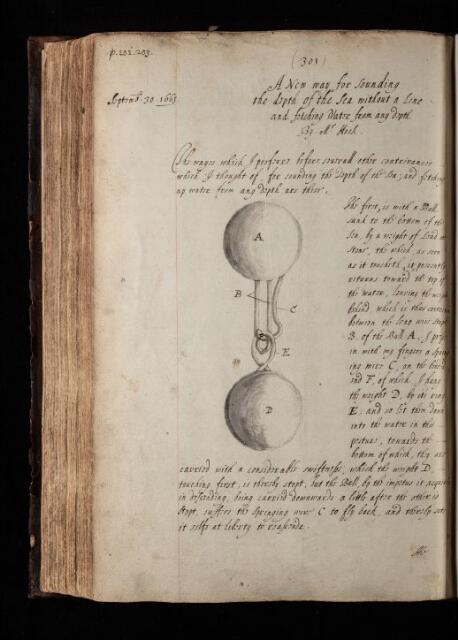 p. 202. 203.
(301)
Septemb. 30. 1663
A New way for sounding
the depth of the Sea without a line
and fetching Water from any depth
By Mr. Hook.
The wayes which I preferre before severall other contrivances
which I thought of, for sounding the depth of the Sea, and fetching
up water from any depth are these.
The first, is with a Ball
sunk to the bottom of the
Sea, by a weight of Lead or
Stone, the which, as soon
as it toucheth, it presently
returns toward the top of
the water, leaving the weight
behind, which is thus contrived
between the long wires
B. of the Ball A. I
in with my fingers a Spring
ing wier C, on the bended
end F, of which I hang
the weight D, by its ring
E: and so let them down
into the water in this
posture, towards the
bottom of which, they are
carried with a considerable swiftness, which the weight D,
touching first, is thereby stopt, but the Ball, by the impetus it acquired
in descending, being carried downwards a little after the other is
stopt, suffers the springing wier C to fly back, and thereby sets
it self at liberty to reascende.
A
B
C
E
D